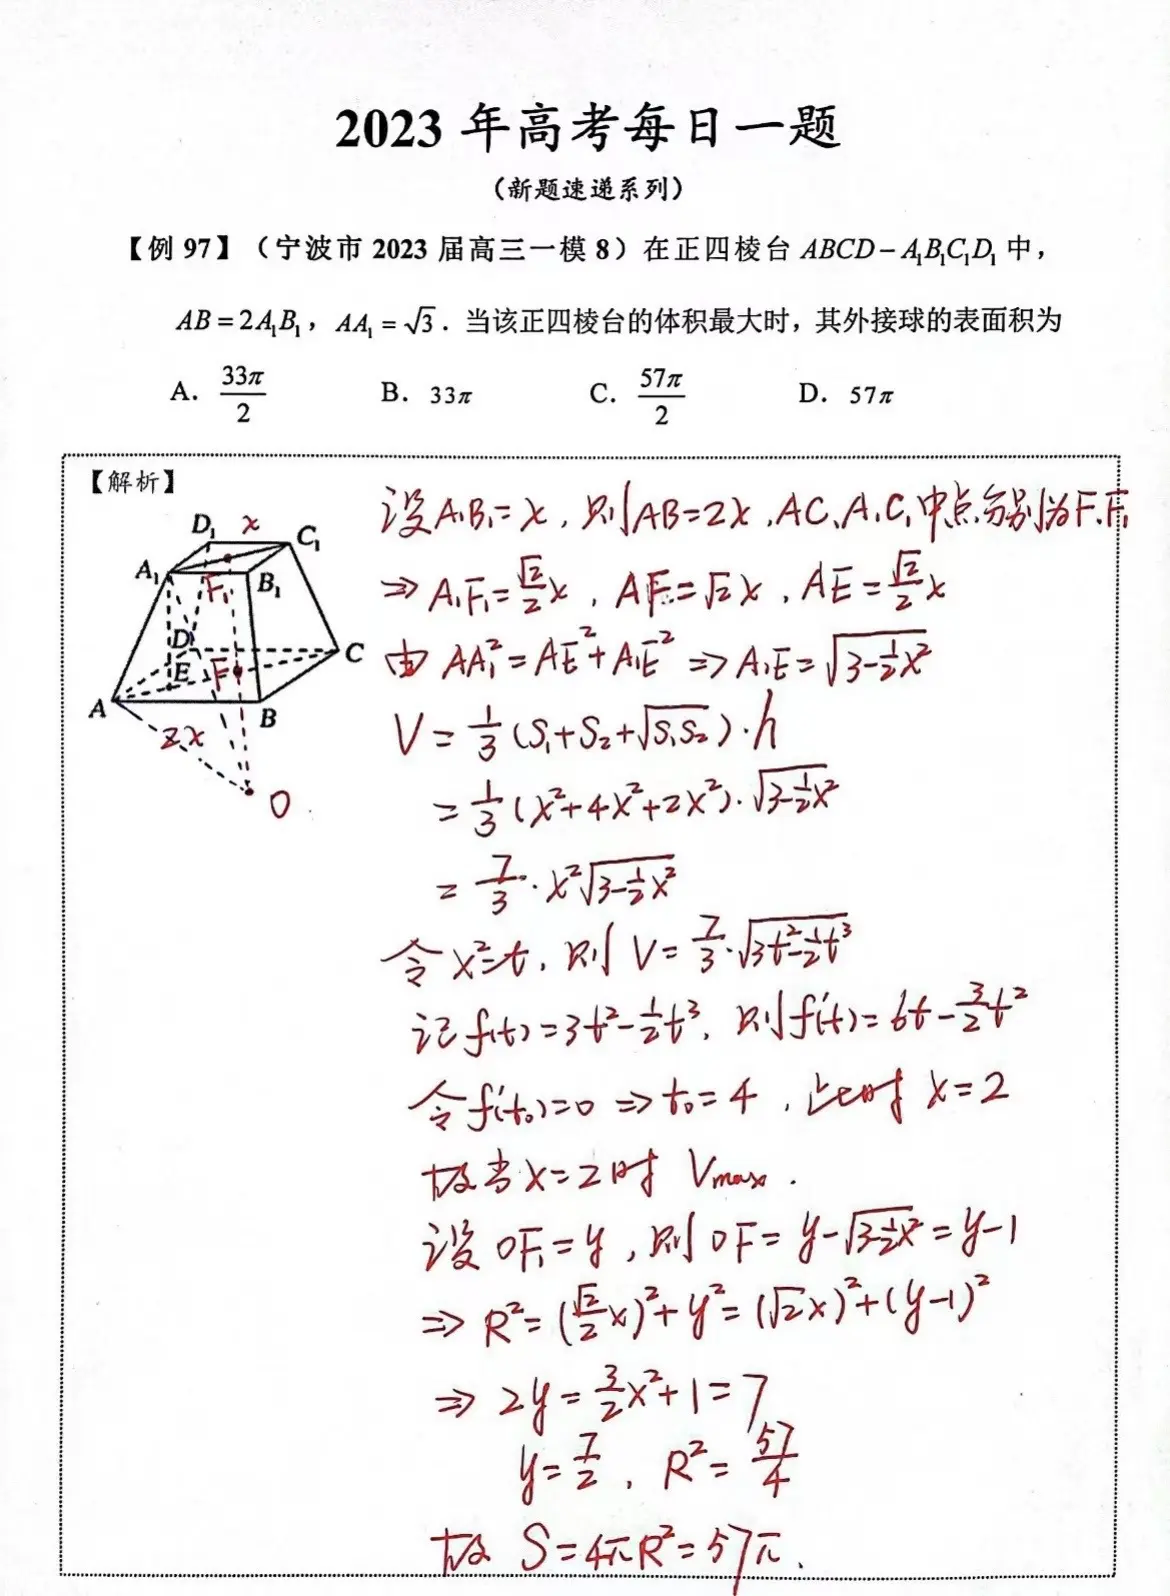 2023 年高考每日一题
（新题速递系列）
【例 97】（宁波市 2023 届高三一模 8）在正四棱台 ABCD－A₁B₁C₁D₁ 中，
AB＝2A₁B₁，AA₁＝√3．当该正四棱台的体积最大时，其外接球的表面积为
A．33π/2 B．33π C．57π/2 D．57π
【解析】
D₁ x C₁
A₁ F₁ B₁
D
E F C
A B
2x
O
设A₁B₁=x，则AB=2x，AC、A₁C₁中点分别为F、F₁
⇒ A₁F₁=√2/2 x，AF=√2x，AE=√2/2 x
由 AA₁²=AE²+A₁E² ⇒ A₁E=√(3-1/2x²)
V=1/3(S₁+S₂+√(S₁S₂))·h
=1/3(x²+4x²+2x²)·√(3-1/2x²)
=7/3·x²√(3-1/2x²)
令x²=t，则 V=7/3·√(3t²-1/2t³)
记f(t)=3t²-1/2t³，则f'(t)=6t-3/2t²
令f'(t₀)=0 ⇒ t₀=4，此时 x=2
故当x=2时 Vmax．
设OF₁=y，则OF=y-√(3-1/2x²)=y-1
⇒ R²=(√2/2 x)²+y²=(√2x)²+(y-1)²
⇒ 2y=3/2x²+1=7
y=7/2，R²=57/4
故 S=4πR²=57π．